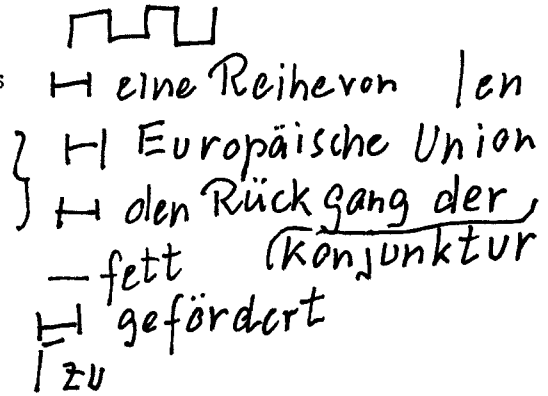 s
⊢⊣ eine Reihe von |en
⊢⊣ Europäische Union
⊢⊣ den Rückgang der
Konjunktur
— fett
⊢⊣ gefördert
| zu